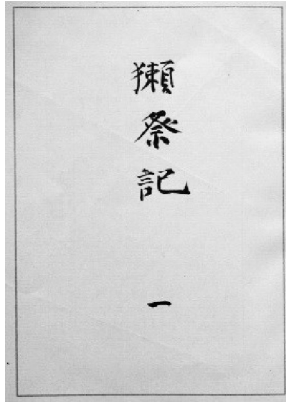 獺祭記
一